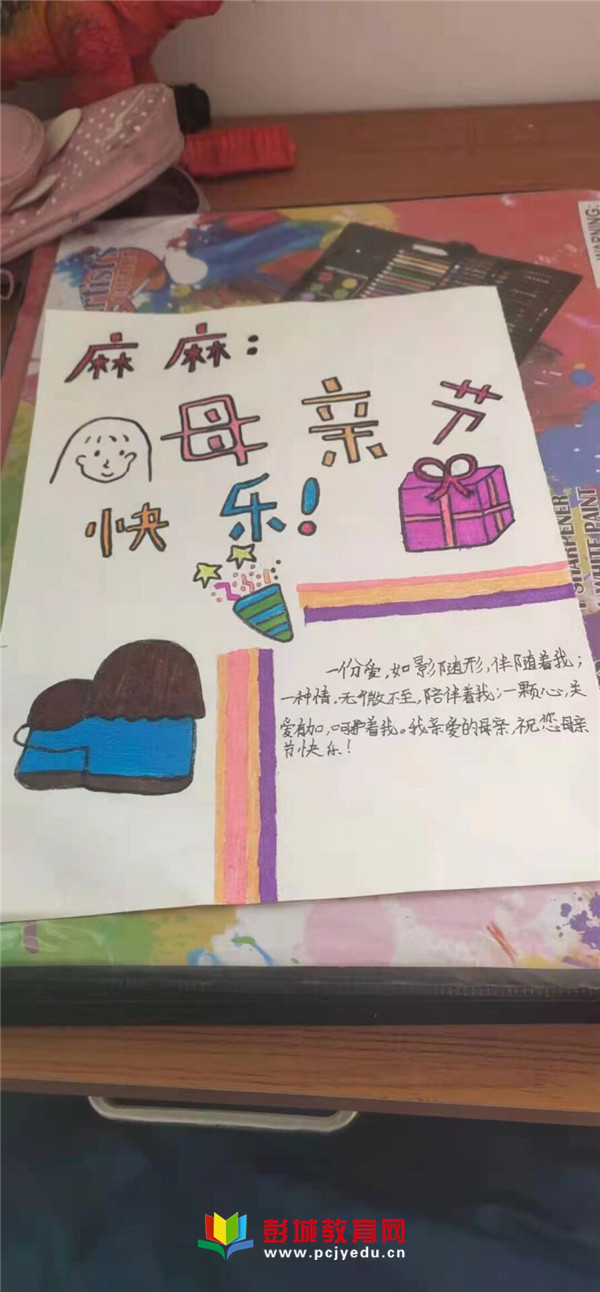 麻麻:
母亲节
快乐!
一份爱,如影随形,伴随着我;
一种情,无微不至,陪伴着我;一颗心,关
爱有加,呵护着我。我亲爱的母亲,祝您母亲
节快乐!
WARNING:
SHARPENER
WHITE PAINT
彭城教育网
www.pcjyedu.cn